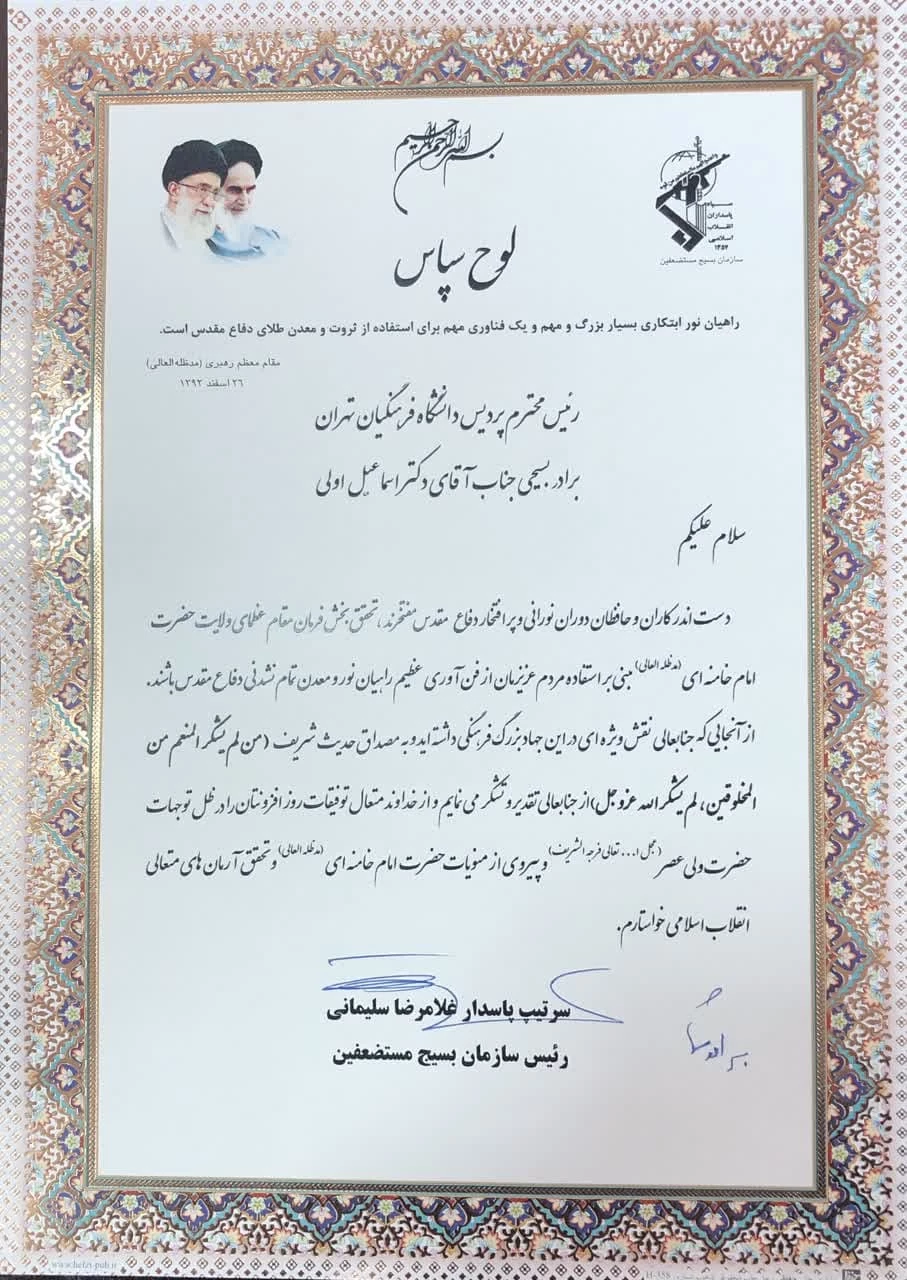 بسم الله الرحمن الرحیم
سپاه
پاسداران
انقلاب
اسلامی
۱۳۵۷
سازمان بسیج مستضعفین
لوح سپاس
راهیان نور ابتکاری بسیار بزرگ و مهم و یک فناوری مهم برای استفاده از ثروت و معدن طلای دفاع مقدس است.
مقام معظم رهبری (مدظله العالی)
۲۶ اسفند ۱۳۹۲
رئیس محترم پردیس دانشگاه فرهنگیان تهران
برادر بسیجی جناب آقای دکتر اسماعیل اولی
سلام علیکم
دست اندرکاران و حافظان دوران نورانی و پر افتخار دفاع مقدس مفتخرند، تحقق بخش فرمان مقام عظمای ولایت حضرت
امام خامنه ای (مدظله العالی) مبنی بر استفاده مردم عزیزمان از فن آوری عظیم راهیان نور و معدن تمام نشدنی دفاع مقدس باشند.
از آنجایی که جنابعالی نقش ویژه ای در این جهاد بزرگ فرهنگی داشته اید و به مصداق حدیث شریف (من لم یشکر المنعم من
المخلوقین، لم یشکر الله عزوجل) از جنابعالی تقدیر و تشکر می نمایم و از خداوند متعال توفیقات روز افزونتان را در ظل توجهات
حضرت ولی عصر (عجل ا... تعالی فرجه الشریف) و پیروی از منویات حضرت امام خامنه ای (مدظله العالی) و تحقق آرمان های متعالی
انقلاب اسلامی خواستارم.
سرتیپ پاسدار غلامرضا سلیمانی
رئیس سازمان بسیج مستضعفین
www.hefzi-pub.ir
H-358